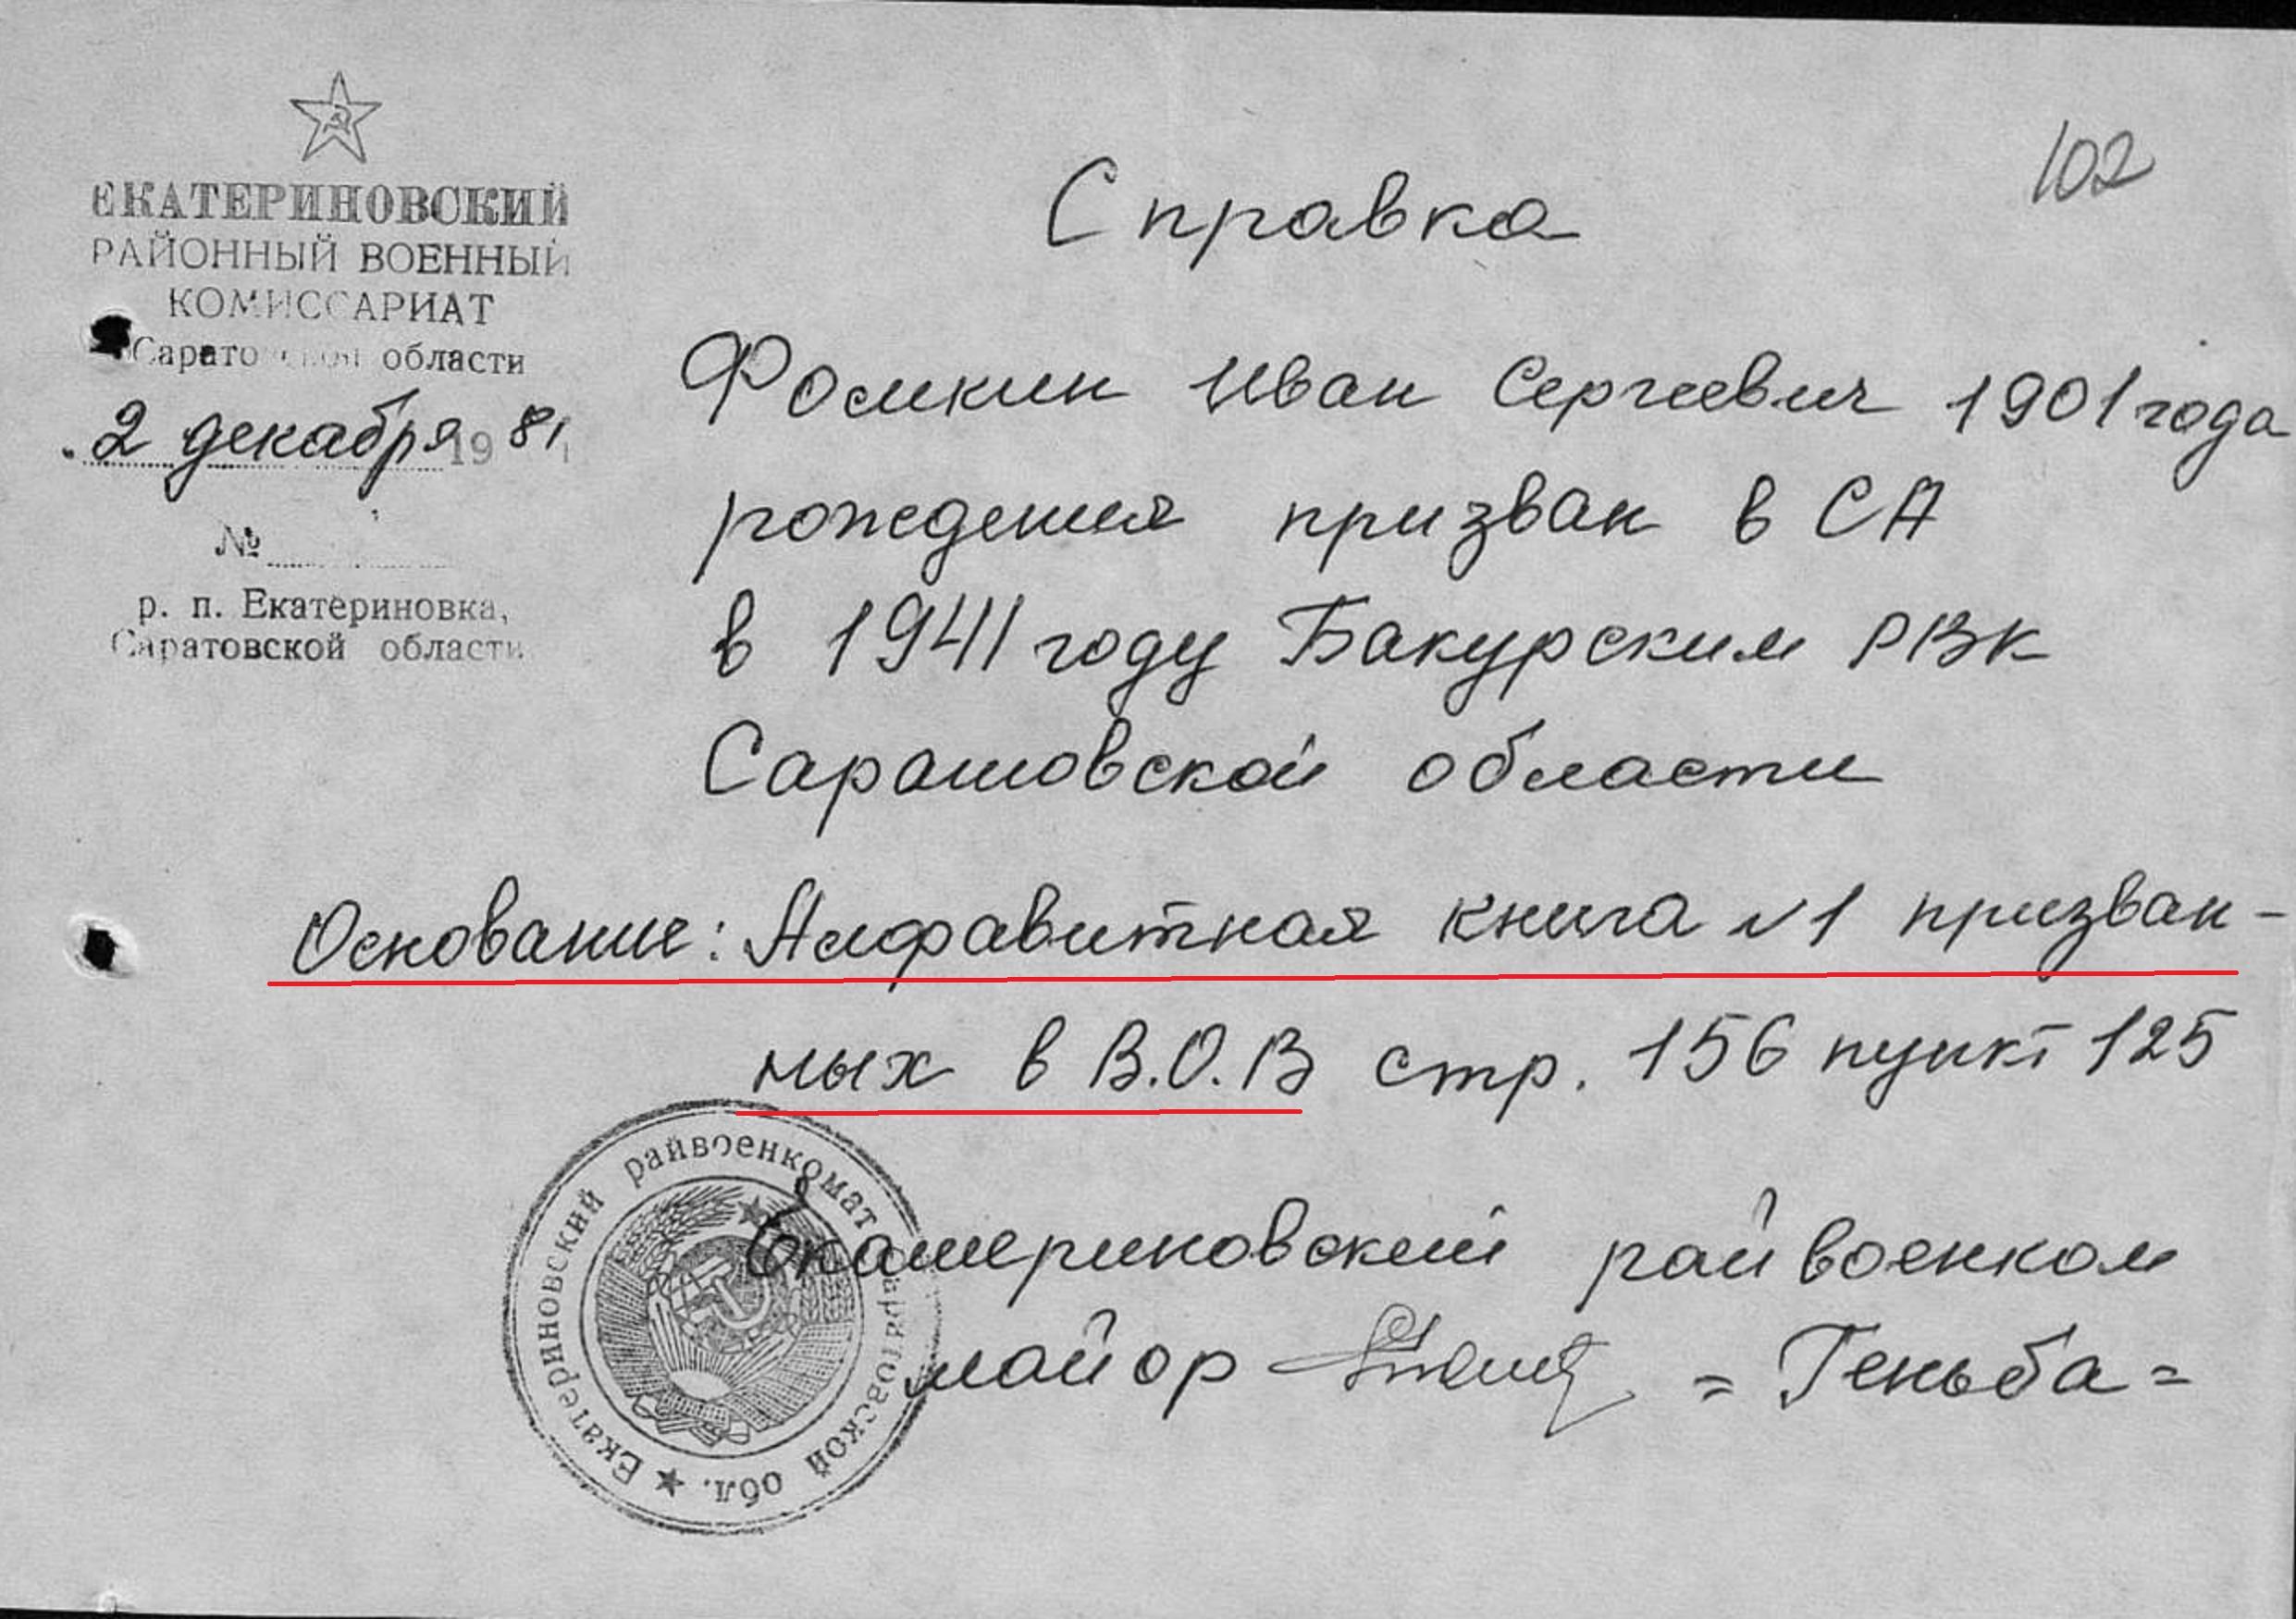 ЕКАТЕРИНОВСКИЙ
РАЙОННЫЙ ВОЕННЫЙ
КОМИССАРИАТ
Саратовской области
2 декабря 1981
№
р. п. Екатериновка,
Саратовской области
102
Справка
Фомкин Иван Сергеевич 1901 года
рождения призван в СА
в 1941 году Бакурским РВК
Саратовской области
Основание: Алфавитная книга №1 призван-
ных в В.О.В стр. 156 пункт 125
Екатериновский райвоенком
майор = Геньба =
★ Екатериновский райвоенкомат Саратовской обл.